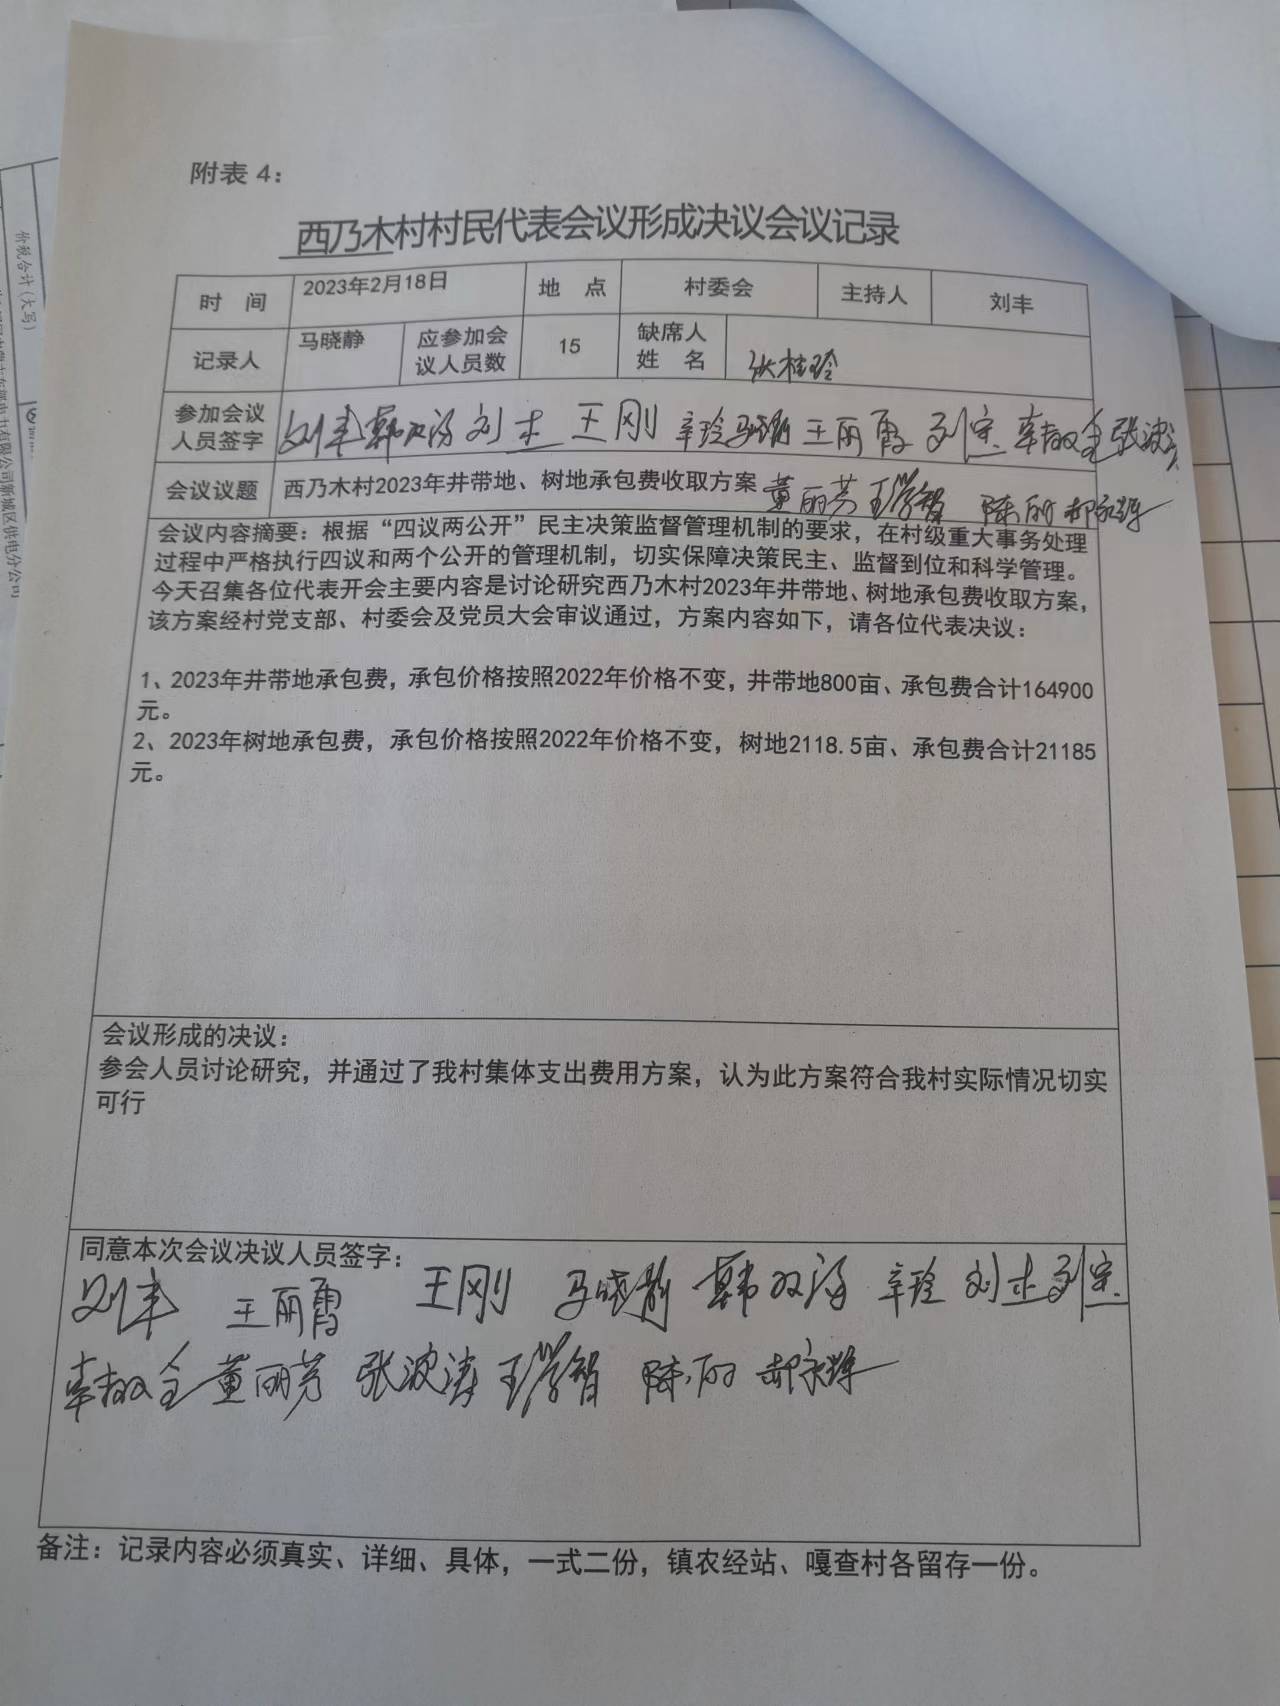 附表 4：
西乃木村村民代表会议形成决议会议记录
时 间 2023年2月18日 地 点 村委会 主持人 刘丰
记录人 马晓静 应参加会议人员数 15 缺席人姓名 张桂玲
参加会议人员签字 刘丰 韩双 刘 王刚 辛玲 马晓静 王丽霞 刘 张波涛
会议议题 西乃木村2023年井带地、树地承包费收取方案 董丽芳 王学智 陈丽 郝永
会议内容摘要：根据“四议两公开”民主决策监督管理机制的要求，在村级重大事务处理
过程中严格执行四议和两个公开的管理机制，切实保障决策民主、监督到位和科学管理。
今天召集各位代表开会主要内容是讨论研究西乃木村2023年井带地、树地承包费收取方案，
该方案经村党支部、村委会及党员大会审议通过，方案内容如下，请各位代表决议：
1、2023年井带地承包费，承包价格按照2022年价格不变，井带地800亩、承包费合计164900
元。
2、2023年树地承包费，承包价格按照2022年价格不变，树地2118.5亩、承包费合计21185
元。
会议形成的决议：
参会人员讨论研究，并通过了我村集体支出费用方案，认为此方案符合我村实际情况切实
可行
同意本次会议决议人员签字：
刘丰 王丽霞 王刚 马晓静 韩双 辛玲 刘 刘
董丽芳 张波涛 王学智 陈丽 郝永
备注：记录内容必须真实、详细、具体，一式二份，镇农经站、嘎查村各留存一份。
价税合计（大写）
电力有限公司新城区供电分公司